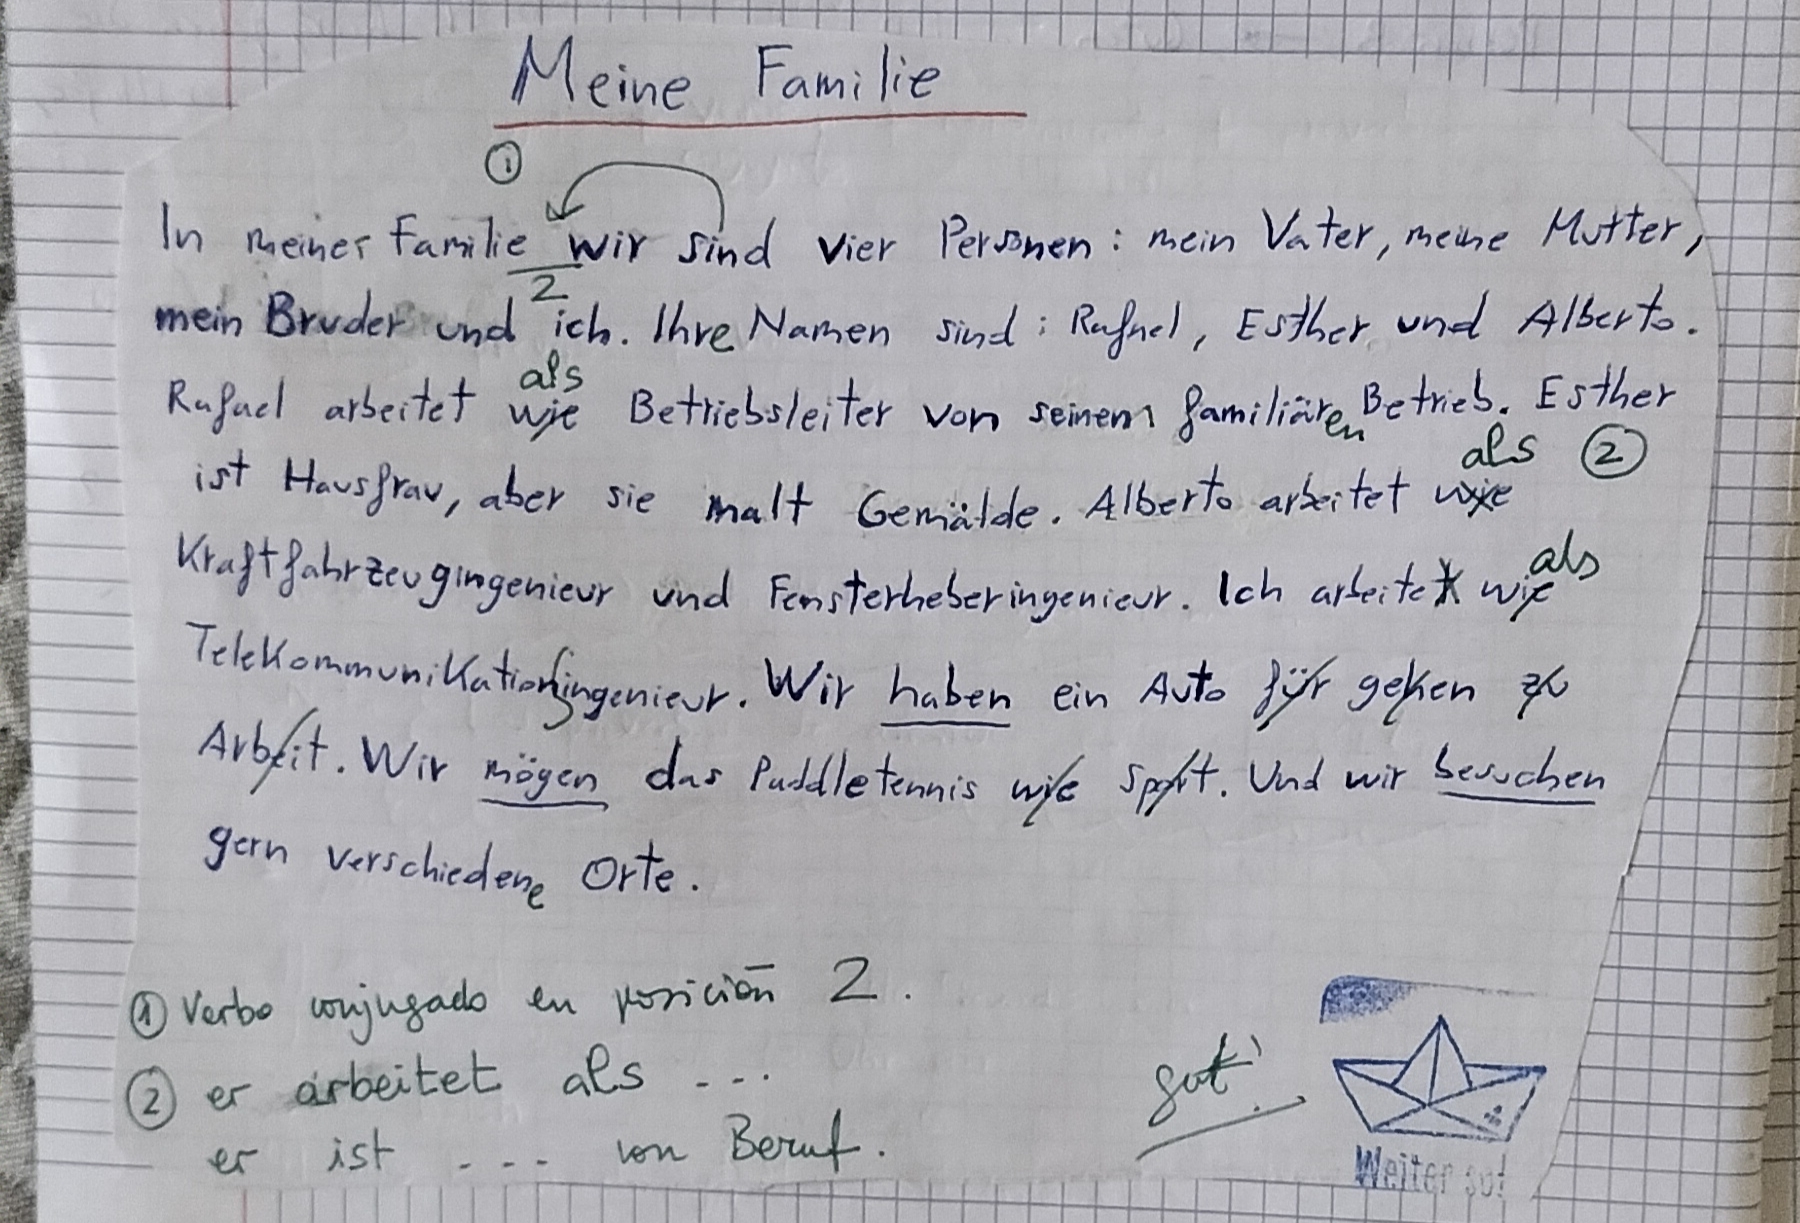 Meine Familie
①
In meiner Familie wir sind vier Personen: mein Vater, meine Mutter,
2
mein Bruder und ich. Ihre Namen sind: Rafael, Esther und Alberto.
als
Rafael arbeitet wie Betriebsleiter von seinem familiären Betrieb. Esther
als ②
ist Hausfrau, aber sie malt Gemälde. Alberto arbeitet wie
als
Kraftfahrzeugingenieur und Fensterheberingenieur. Ich arbeitet wie
Telekommunikationsingenieur. Wir haben ein Auto für gehen zu
Arbeit. Wir mögen das Paddletennis wie Sport. Und wir besuchen
gern verschiedene Orte.
① Verbo conjugado en posición 2.
② er arbeitet als ---
er ist --- von Beruf.
gut!
Weiter so!